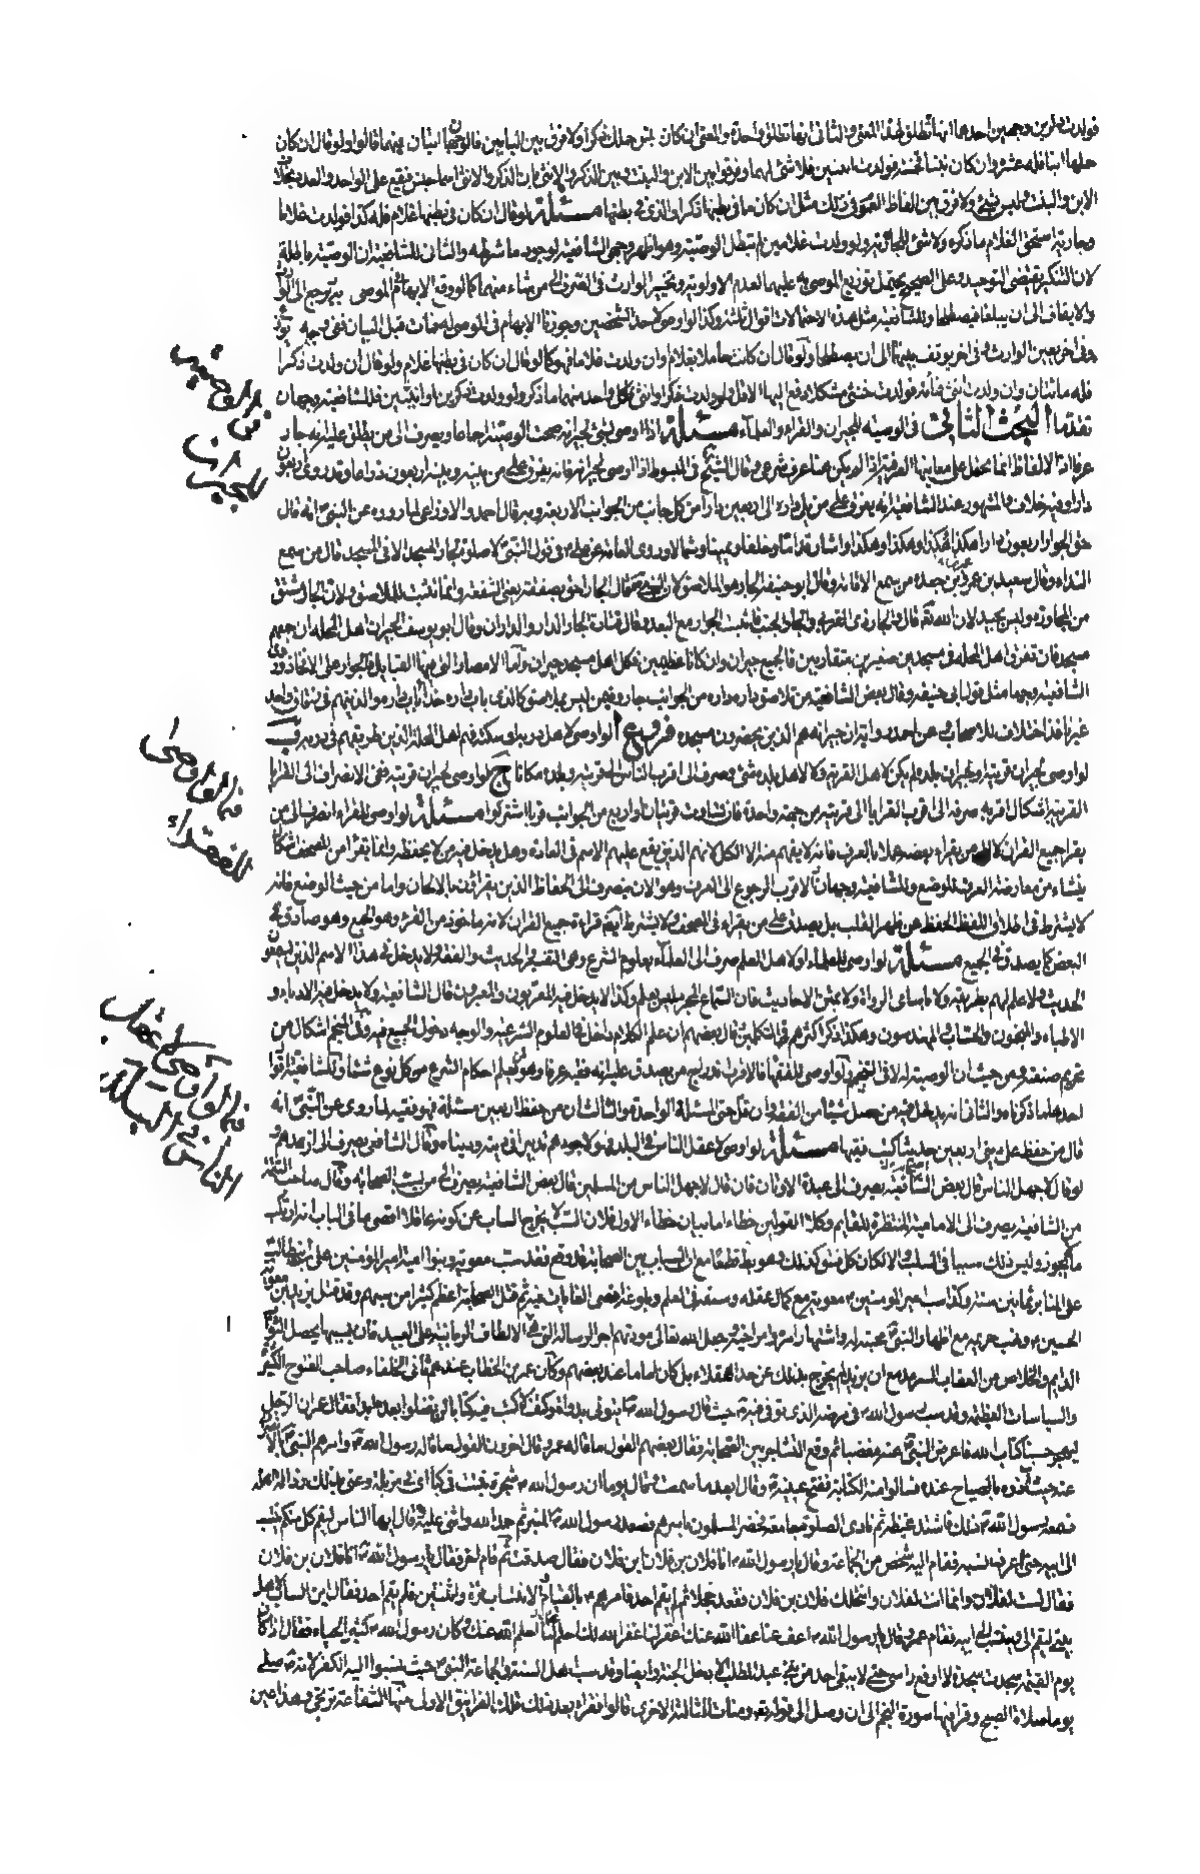 فولدت ذكرين وجهين احدهما انها تطلق لهذا المعنى والثانى انها تطلق واحدة والمعنى ان كان جنس حملك ذكرا ولا فرق بين البابين قالوا وجهان اثنان بينهما قالوا ولو قال ان كان
حملها ابنا فله عشرة وان كان بنتا فخمسة فولدت ابنين فلا شئ لهما وفرقوا بين الابن والبنت وبين الذكر والانثى بان الذكر والانثى اسما جنس فيقع على الواحد والعدد بخلاف
الابن والبنت وليس بشئ ولا فرق بين الفاظ العموم فى ذلك مثل ان كان ما فى بطنها ذكرا والذى فى بطنها مسئلة لو قال ان كان فى بطنها غلام فله كذا فولدت غلاما
وجارية استحق الغلام ما ذكره ولا شئ للجارية ولو ولدت غلامين لم تبطل الوصية وهو اظهر وجهى الشافعية لوجود ما شرطه والثانى للشافعية ان الوصية باطلة
لان التنكير يقتضى التوحيد وعلى الصحيح يحتمل توزيع الموصى به عليهما لعدم الاولوية وتخيير الوارث فى الصرف الى من شاء منهما كما لو وقع الابهام فى الموصى به يرجع الى الوارث
والايقاف الى ان يبلغا فيصطلحا وللشافعية مثل هذه الاحتمالات اقوال ثلثة وكذا لو اوصى لاحد الشخصين وجوزنا الابهام فى الموصى له فمات قبل البيان ففى وجه
وفى اخر يعين الوارث وفى اخر يوقف بينهما الى ان يصطلحا ولو قال ان كانت حاملا بغلام وان ولدت غلاما فهو كما لو قال ان كان فى بطنها غلام ولو قال ان ولدت ذكرا
فله مائتان وان ولدت انثى فمائة فولدت خنثى مشكلا دفع اليها الاقل ولو ولدت ذكرا وانثى فلكل واحد منهما ما ذكر ولو ولدت ذكرين او انثيين فللشافعية وجهان
تقدما البحث الثانى فى الوصية للجيران والقراء والعلماء مسئلة اذا اوصى بشئ لجيرانه صحت الوصية اجماعا ويصرف الى من يطلق عليه انه جار
عرفا اذ الالفاظ انما تحمل على معانيها العرفية اذا لم يكن هنا عرف شرعى وقال الشيخ فى المبسوط اذا اوصى لجيرانه فانه يفرق على من بينه وبينه اربعون ذراعا وقد روى اربعون
دارا وفيه خلاف والمشهور عند الشافعية انه يفرق على من يلى داره الى اربعين دارا من كل جانب من الجوانب الاربعة وبه قال احمد والاوزاعى لما رووه عن النبى انه قال
حق الجوار اربعون دارا هكذا وهكذا وهكذا وهكذا واشار قداما وخلفا ويمينا وشمالا وروى العامة عن على فى قول النبى لا صلوة لجار المسجد الا فى المسجد قال من سمع
النداء وقال سعيد بن عمرو بن جعدة من سمع الاقامة وقال ابو حنيفة الجار هو الملاصق لان النبى قال الجار احق بصقبه يعنى الشفعة وانما تثبت للملاصق ولان الجار مشتق
من المجاورة وليس بجيد لان الله تعالى قال والجار ذى القربى والجار الجنب فاثبت الجوار مع البعد وقال قتادة الجار الدار والداران وقال ابو يوسف الجيران اهل المحلة ان جمعهم
مسجد فان تفرق اهل المحلة فى مسجدين صغيرين متقاربين فالجميع جيران وان كانا عظيمين فكل اهل مسجد جيران واما الامصار التى فيها القبايل فالجوار على الافخاذ
الشافعية وجها مثل قول ابى حنيفة وقال بعض الشافعية من تلاصق داره داره من الجوانب جار وفيمن ليس بملاصق كالذى باب داره حذاء باب داره والذين هم فى زقاق واحد
غير نافذ اختلاف للاصحاب وعن احمد رواية ان جيرانه هم الذين يحضرون مسجده فروع ا لو اوصى لاهل دربه او سكته فهم اهل المحلة الذين طريقهم فى دربه ب
لو اوصى لجيران قريته او لجيران بلده لم يكن لاهل القرية ولا لاهل بلده شئ وصرف الى اقرب الناس الى قريته وبلده مكانا ج لو اوصى لجيران قريته ففى الانصراف الى القرايا
القريبة اشكال اقربه صرفه الى اقرب القرايا الى قريته من جهة واحدة فان تساوت قريتان او اربع من الجوانب قربا اشتركوا مسئلة لو اوصى للقراء انصرف الى من
يقرا جميع القران لا الى من يقراء بعضه عملا بالعرف فانه لا يفهم منه الا الكل لانهم الذين يقع عليهم الاسم فى العادة وهل يدخل فيه من لا يحفظه وانما يقرا من المصحف اشكال
ينشاء من معارضة العرف للوضع وللشافعية وجهان الاقرب الرجوع الى العرف وهو الان ينصرف الى الحفاظ الذين يقراؤن بالالحان واما من حيث الوضع فانه
لا يشترط فى اطلاق اللفظ الحفظ عن ظهر القلب بل يصدق على من يقراء فى المصحف ولا يشترط ايضا قراءة جميع القران لانه ماخوذ من القرء وهو الجمع وهو صادق فى
البعض كما يصدق فى الجميع مسئلة لو اوصى للعلماء او لاهل العلم صرف الى العلماء بعلوم الشرع وهى التفسير والحديث والفقه ولا يدخل فى هذا الاسم الذين يسمعون
الحديث ولا علم لهم بطريقه ولا باسامى الرواة ولا بمتن الاحاديث فان السماع المجرد ليس بعلم وكذا لا يدخل فيه المقرئون والمعبرون قال الشافعية ولا يدخل فيه الادباء و
الاطباء والمنجمون والحساب والمهندسون وهكذا ذكر اكثرهم فى المتكلمين وقال بعضهم ان علم الكلام داخل فى العلوم الشرعية والوجه دخول الجميع فيه وفى المنجم اشكال من
تحريم صنعته ومن حيث ان الوصية له لا فى التنجيم ولو اوصى للفقهاء فالاقرب اندراج من يصدق عليه انه فقيه عرفا وهو يعلم احكام الشرع من كل نوع شيئا وللشافعية اقوال
احدها ما ذكرناه والثانى انه يدخل فيه من حصل شيئا من الفقه وان قل حتى المسئلة الواحدة والثالث ان من حفظ اربعين مسئلة فهو فقيه لما روى عن النبى انه
قال من حفظ على امتى اربعين حديثا كتب فقيها مسئلة لو اوصى لاعقل الناس فى البلد فهو لاجودهم تدبيرا فى دينه ودنياه وقال الشافعى يصرف الى ازهدهم و
لو قال لاجهل الناس قال بعض الشافعية يصرف الى عبدة الاوثان فان قال لاجهل الناس من المسلمين قال بعض الشافعية يصرف الى من يسب الصحابة وقال صاحب التتمة
من الشافعية يصرف الى الامامية المنتظرة للقايم وكلا القولين خطاء اما بيان خطاء الاول فلان السب لا يخرج الساب عن كونه عاقلا اقصى ما فى الباب انه ارتكب
ما لا يجوز وليس ذلك سببا فى السلب والا لكان كل فسق كذلك وهو باطل قطعا مع ان السباب بين الصحابة قد وقع فقد سب معوية وبنو امية امير المؤمنين على بن ابى طالب
على المنابر ثمانين سنة وكذا سب امير المؤمنين معوية مع كمال عقله وسعته فى العلم وبلوغه اقصى الغايات فيه ثم قتل الصحابة اعظم كثيرا من سبهم وقد قتل يزيد بن معوية
الحسين ونهب حريمه مع اظهار النبى محبته له واشتهار امره وامر اخيه وجعل الله تعالى مودتهم اجر الرسالة التى هى الالطاف الربانية على العبيد فان بسببها يحصل الثواب
الدايم والخلاص من العقاب السرمد مع ان يزيد لم يخرج بذلك عن حد العقلاء بل كان اماما عند بعضهم وكان عمر بن الخطاب عندهم ثانى الخلفاء صاحب الفتوح الكثيرة
والسياسات العظيمة وقد سب رسول الله فى مرضه الذى توفى فيه حيث قال رسول الله ايتونى بدواة وكتف لاكتب فيه كتابا لن تضلوا بعده ابدا فقال عمر ان الرجل
ليهجر حسبنا كتاب الله فاعرض النبى عنه مغضبا ثم وقع التشاجر بين الصحابة فقال بعضهم القول ما قاله عمر وقال اخرون القول ما قاله رسول الله وامرهم النبى بالانصراف
عنه حيث اذوه بالصياح عنده فسالوا منه الكتابة ففتح عينيه وقال ابعد ما سمعت وقال يوما ان رسول الله شجرة نبتت فى كبا اى فى مزبلة وعنى بذلك رذالة اهله
فسمع رسول الله ذلك فاشتد غيظه ثم نادى الصلوة جامعة فحضر المسلمون باسرهم فصعد رسول الله المنبر ثم حمد الله واثنى عليه وقال ايها الناس ليقم كل منكم ينتسب
الى ابيه حتى اعرف نسبه فقام اليه شخص من الجماعة وقال يا رسول الله انا فلان بن فلان ابن فلان فقال صدقت ثم قام اخر فقال يا رسول الله انا فلان بن فلان
فقال لست لفلان وانما انت لفلان وانتحلك فلان بن فلان فقعد خجلا ثم لم يقم احد فامرهم بالقيام والانتساب مرة واثنتين فلم يقم احد فقال اين الساب لاهل
بيتى ليقم الى وينتسب الى ابيه فقام عمر وقال يا رسول الله اعف عنا عفا الله عنك اغفر لنا غفر الله لك احلم عنا احلم الله عنك وكان رسول الله كثير الحياء فقال اذا كان
يوم القيمة سجدت سجدة لا ارفع راسى حتى لا يبقى احد من بنى عبد المطلب الا دخل الجنة وايضا وقد سب اهل السنة والجماعة النبى حيث نسبوا اليه الكفر لانه صلى
يوما صلاة الصبح وقرا فيها سورة النجم الى ان وصل الى قوله تعالى ومناة الثالثة الاخرى قالوا فقرا بعد ذلك تلك الغرانيق الاولى منها الشفاعة ترتجى وهذا عين
فى الوصية
للجيران
فيما لو اوصى
للفقراء
فيما لو اوصى لاعقل
الناس فى البلد